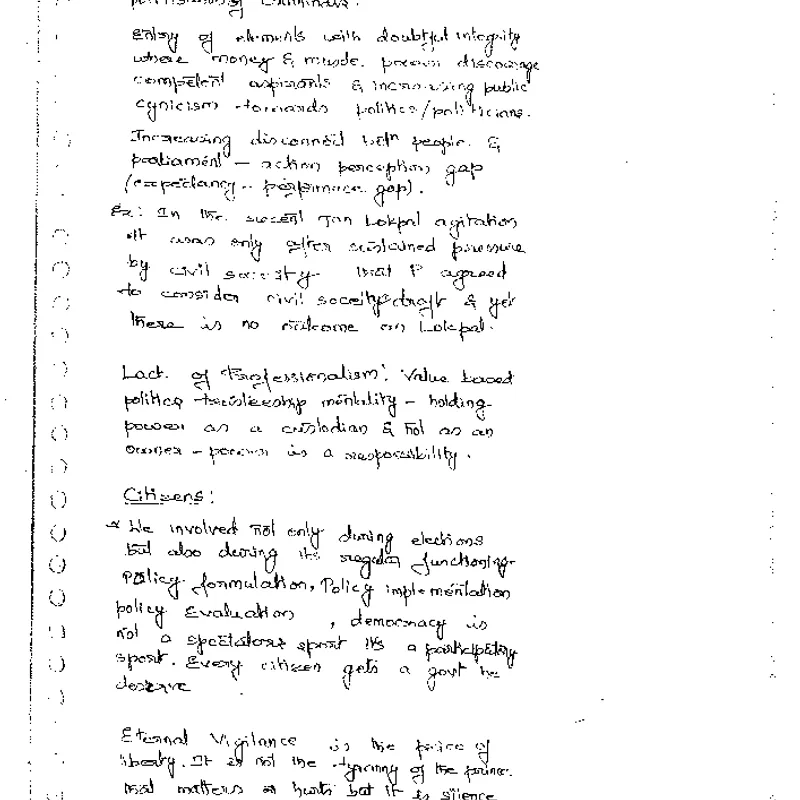 Entry of elements with doubtful integrity
where money & muscle power discourage
competent aspirants & increasing public
cynicism towards politics/politicians.
Increasing disconnect betn people &
parliament – action perception gap
(expectancy - performance gap).
Ex: In the recent Jan Lokpal agitation
it was only after sustained pressure
by civil society that P agreed
to consider civil soceity draft & yet
there is no outcome on Lokpal.
Lack of Professionalism: Value based
politics trusteeship mentality – holding
power as a custodian & not as an
owner – power is a responsibility.
Citizens:
We involved not only during elections
but also during its regular functioning
Policy formulation, Policy implementation
policy Evaluation, democracy is
not a spectators sport its a participatory
sport. Every citizen gets a govt he
deserve
Eternal Vigilance is the price of
liberty. It is not the tyranny of the prince
that matters or hurts but it is silence